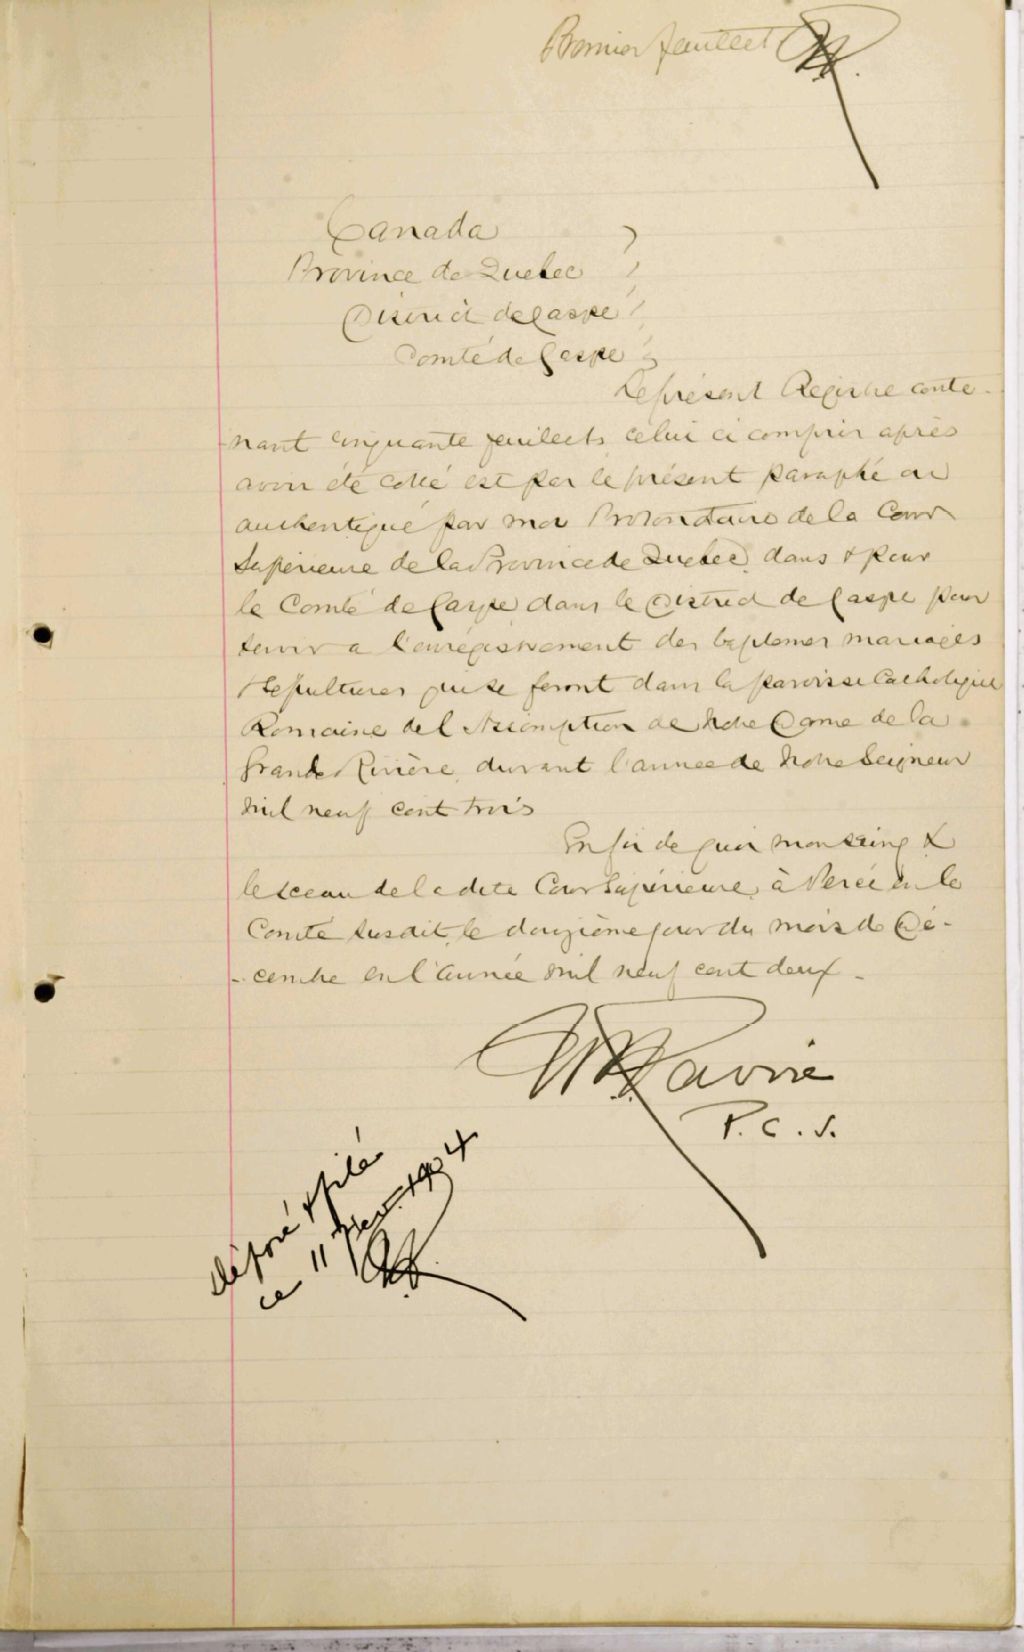 Premier feuillet
Canada
Province de Quebec
District de Gaspé
Comté de Gaspé
Le présent Registre conte-
nant cinquante feuillets celui ci compris après
avoir été coté est par le présent paraphé ou
authentiqué par moi Protonotaire de la Cour
Supérieure de la Province de Quebec, dans & pour
le Comté de Gaspé dans le District de Gaspé pour
servir a l'enregistrement des baptemes mariages
& Sepultures qui se feront dans la paroisse Catholique
Romaine de l'Assomption de Notre Dame de la
Grande Rivière, durant l'année de Notre Seigneur
mil neuf cent trois
En foi de quoi mon seing &
le sceau de la dite Cour Supérieure, à Percé en le
Comté susdit, le douzième jour du mois de Dé-
- cembre en l'année mil neuf cent deux -
P. C. S.
déposé & filé
ce 11 1904